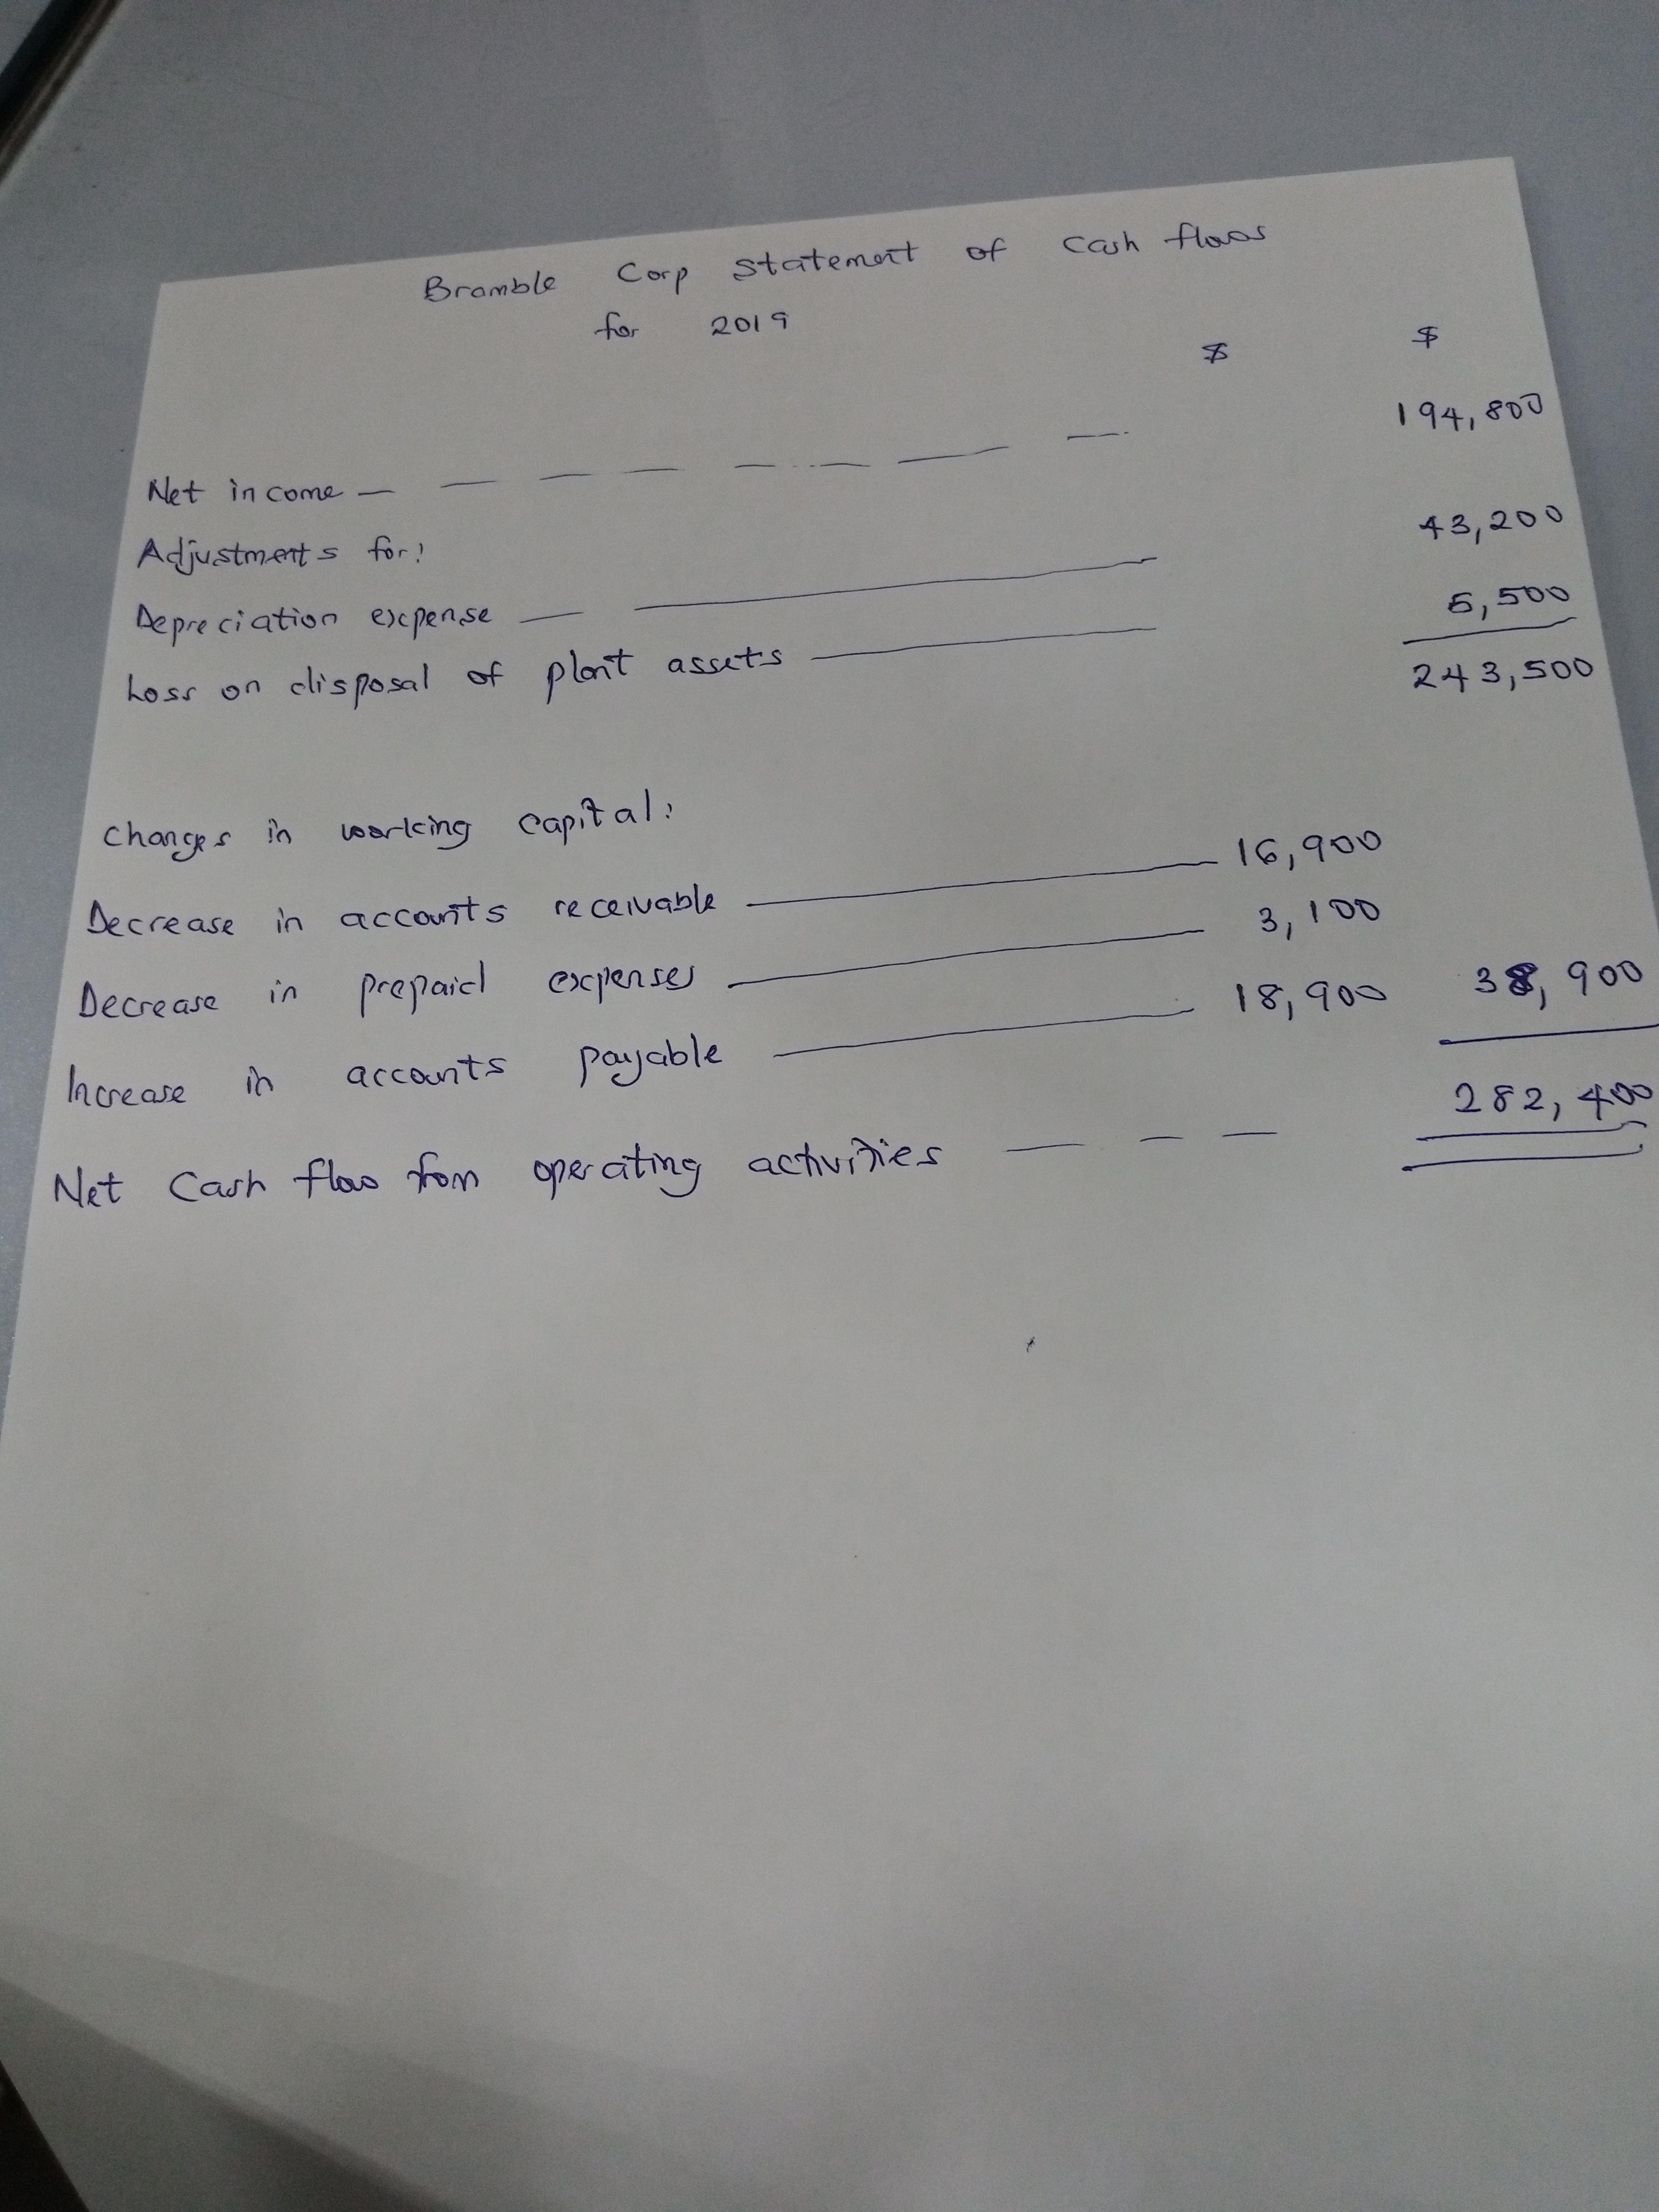 Bramble Corp Statement of Cash flows
for 2019
$ $
Net income 194,800
Adjustments for:
Depreciation expense 43,200
Loss on disposal of plant assets 5,500
243,500
Changes in working capital:
Decrease in accounts receivable 16,900
Decrease in prepaid expenses 3,100
Increase in accounts payable 18,900 38,900
Net Cash flow from operating activities 282,400